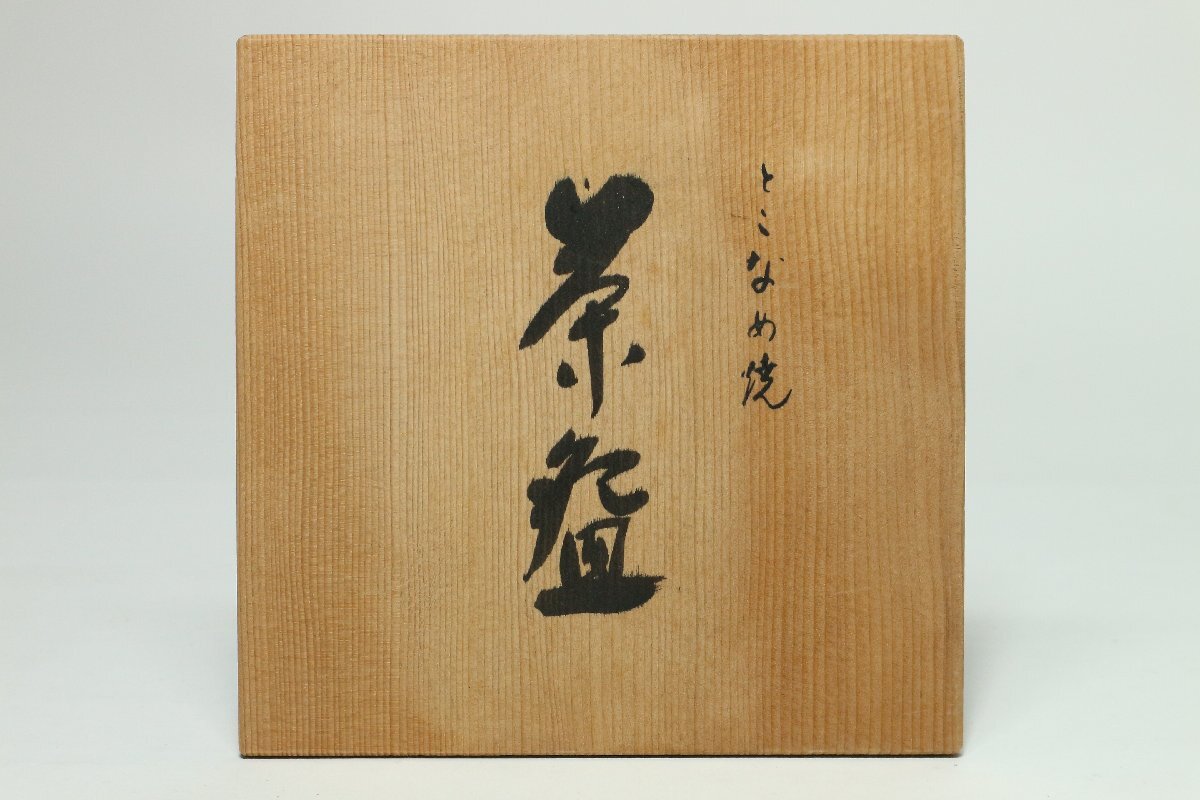 とこなめ焼
茶盌